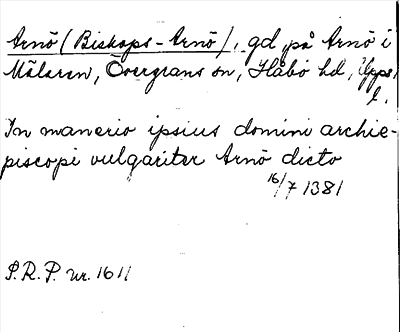 Arnö (Biskops-Arnö), gd på Arnö i
Mälaren, Övergrans sn, Håbo hd, Upps.
l.
In manerio ipsius domini archie-
piscopi vulgariter Arnö dicto
16/7 1381
S.R.P. nr. 1611